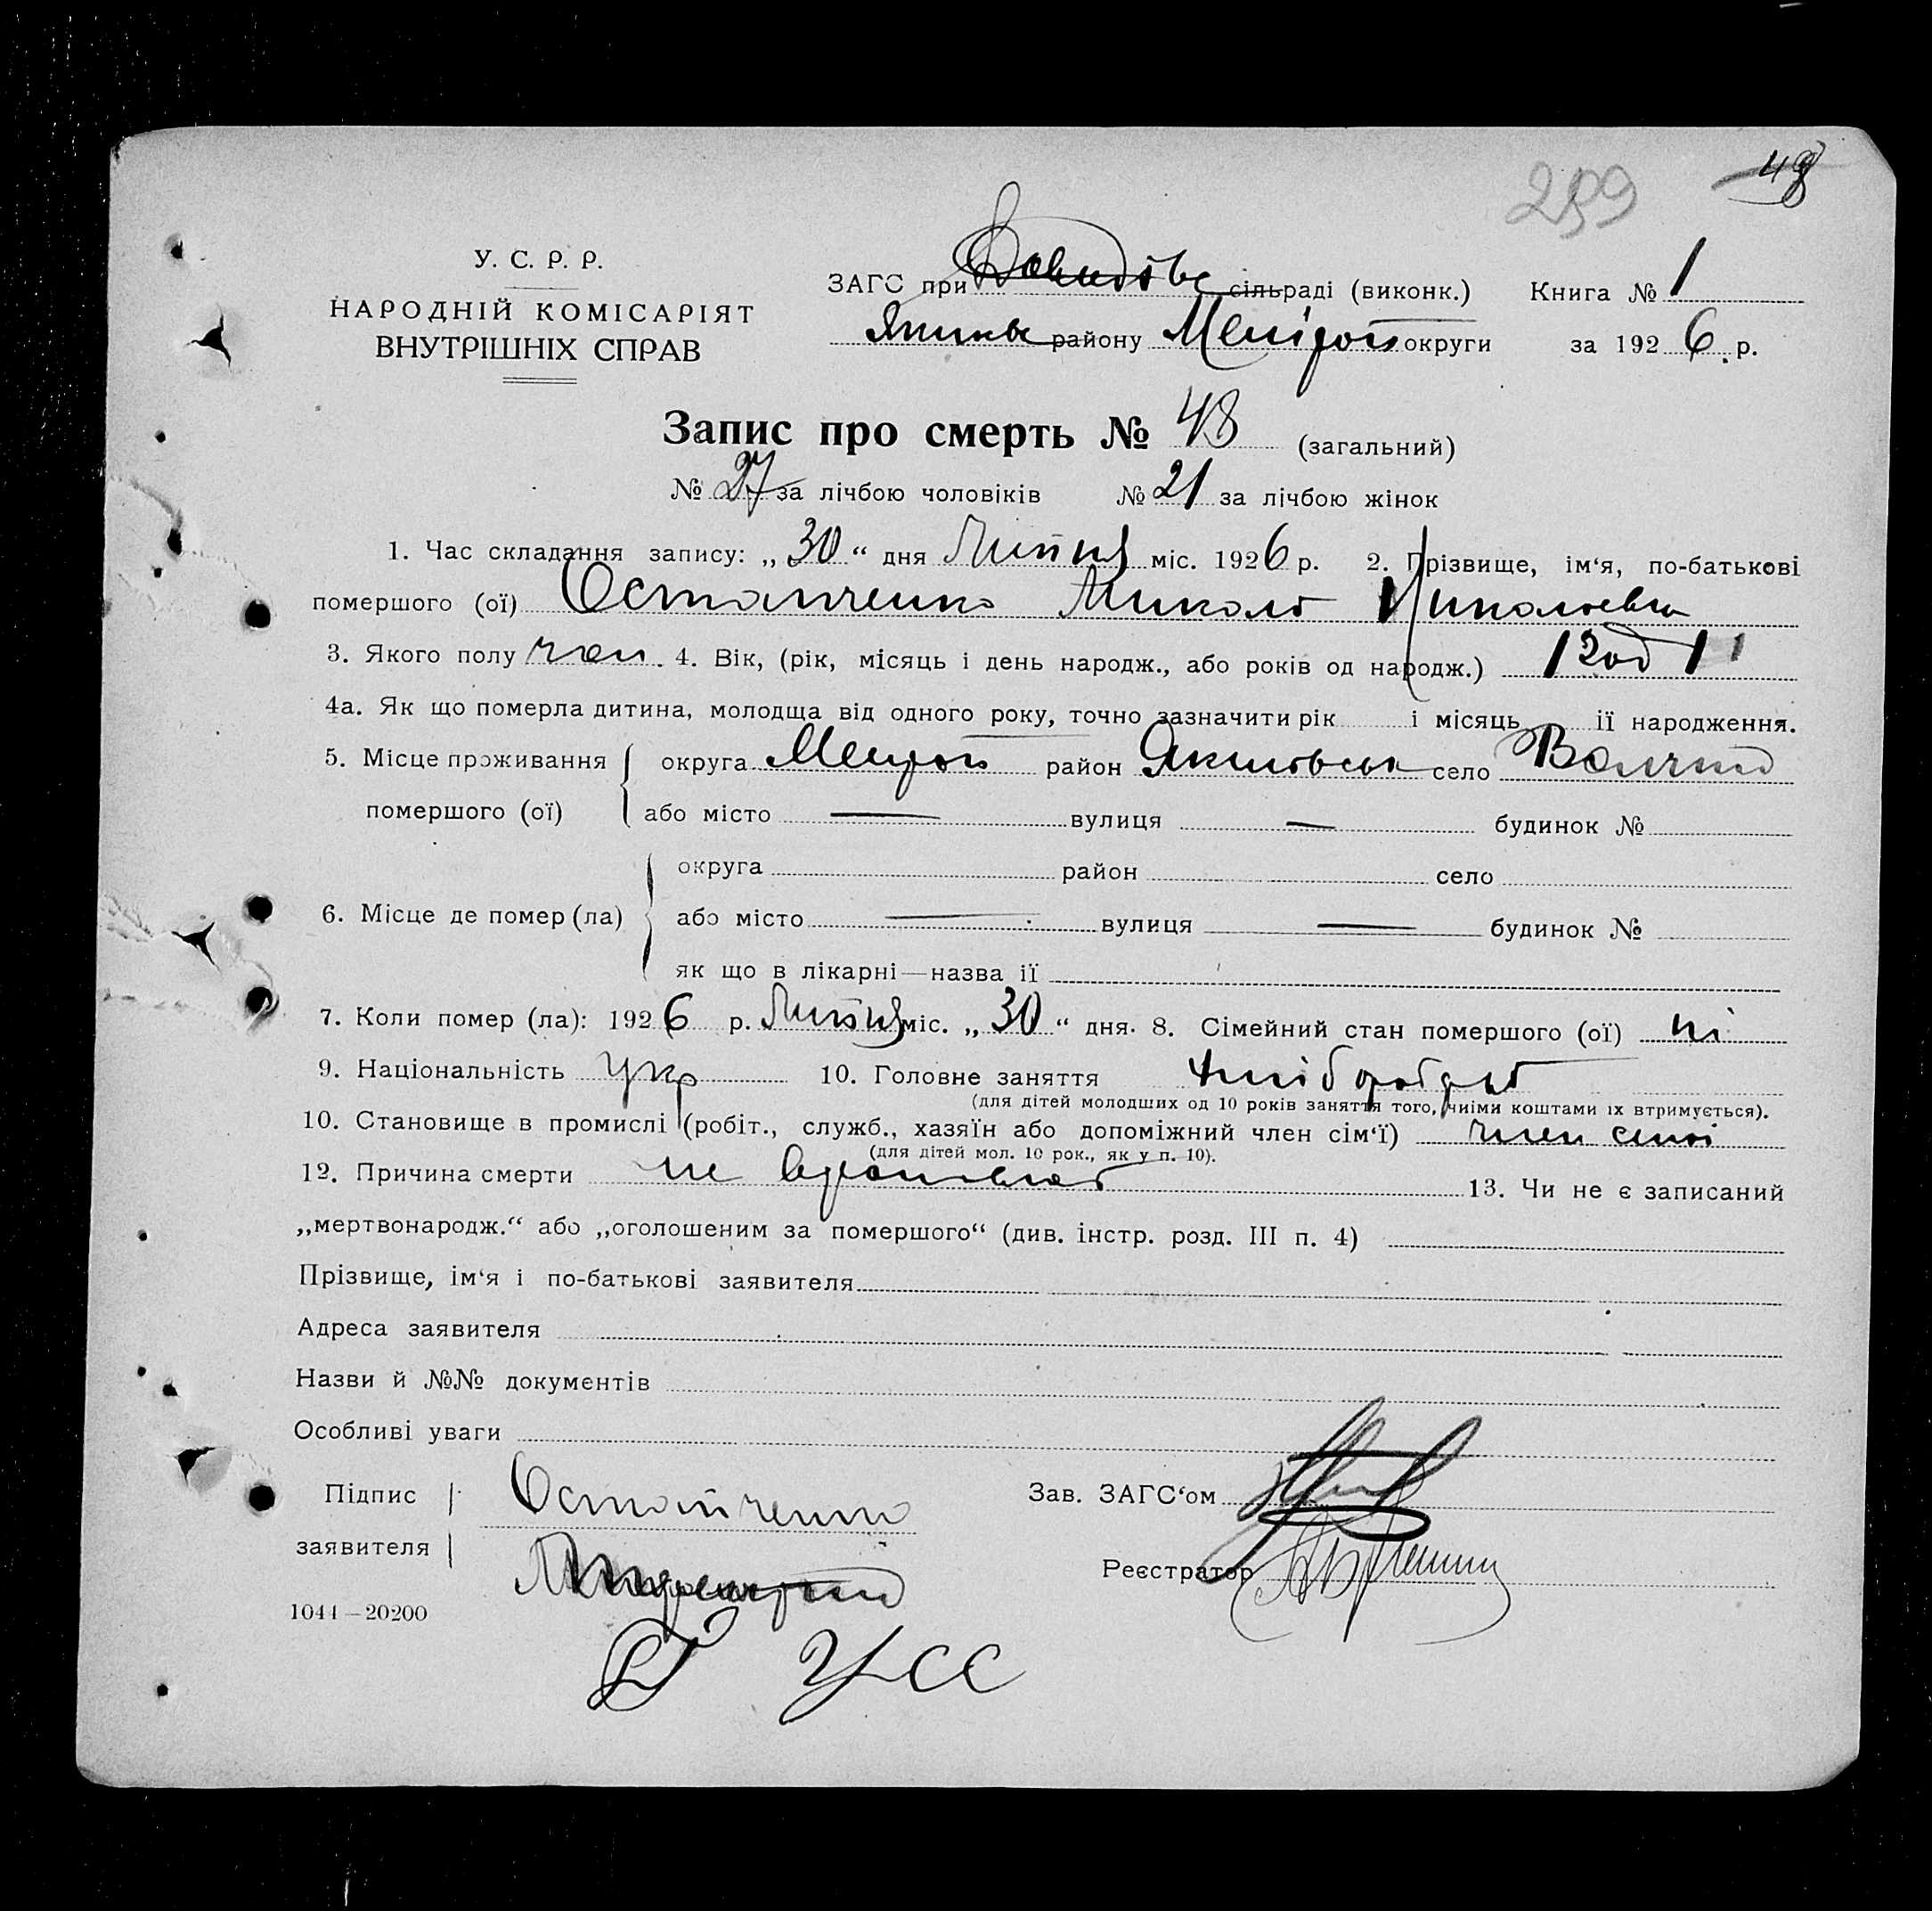 48
259
У. С. Р. Р.
НАРОДНІЙ КОМІСАРІЯТ
ВНУТРІШНІХ СПРАВ
ЗАГС при Давидовс сільраді (виконк.) Книга № 1
Якимов району Меліроп округи за 1926 р.
Запис про смерть № 48 (загальний)
№ 27 за лічбою чоловіків № 21 за лічбою жінок
1. Час складання запису: „30“ дня Липня міс. 1926 р. 2. Прізвище, ім‘я, по-батькові
помершого (ої) Остапченко Микола Николаевич
3. Якого полу чол. 4. Вік, (рік, місяць і день народж., або років од народж.) 1 год
4а. Як що померла дитина, молодща від одного року, точно зазначити рік і місяць її народження.
5. Місце проживання помершого (ої) округа район Якимовськ село
або місто — вулиця — будинок №
6. Місце де помер (ла) округа район село
або місто — вулиця — будинок №
як що в лікарні—назва її
7. Коли помер (ла): 1926 р. Липня міс. „30“ дня. 8. Сімейний стан помершого (ої) ні
9. Національність укр 10. Головне заняття хлібороб
(для дітей молодших од 10 років заняття того, чиїми коштами їх втримується).
10. Становище в промислі (робіт., служб., хазяїн або допоміжний член сім‘ї) член сімї
(для дітей мол. 10 рок., як у п. 10).
12. Причина смерти не 13. Чи не є записаний
„мертвонародж.“ або „оголошеним за помершого“ (див. інстр. розд. III п. 4)
Прізвище, ім‘я і по-батькові заявителя
Адреса заявителя
Назви й №№ документів
Особливі уваги
Підпис заявителя Остапченко
Зав. ЗАГС‘ом
Реєстратор
1044—20200